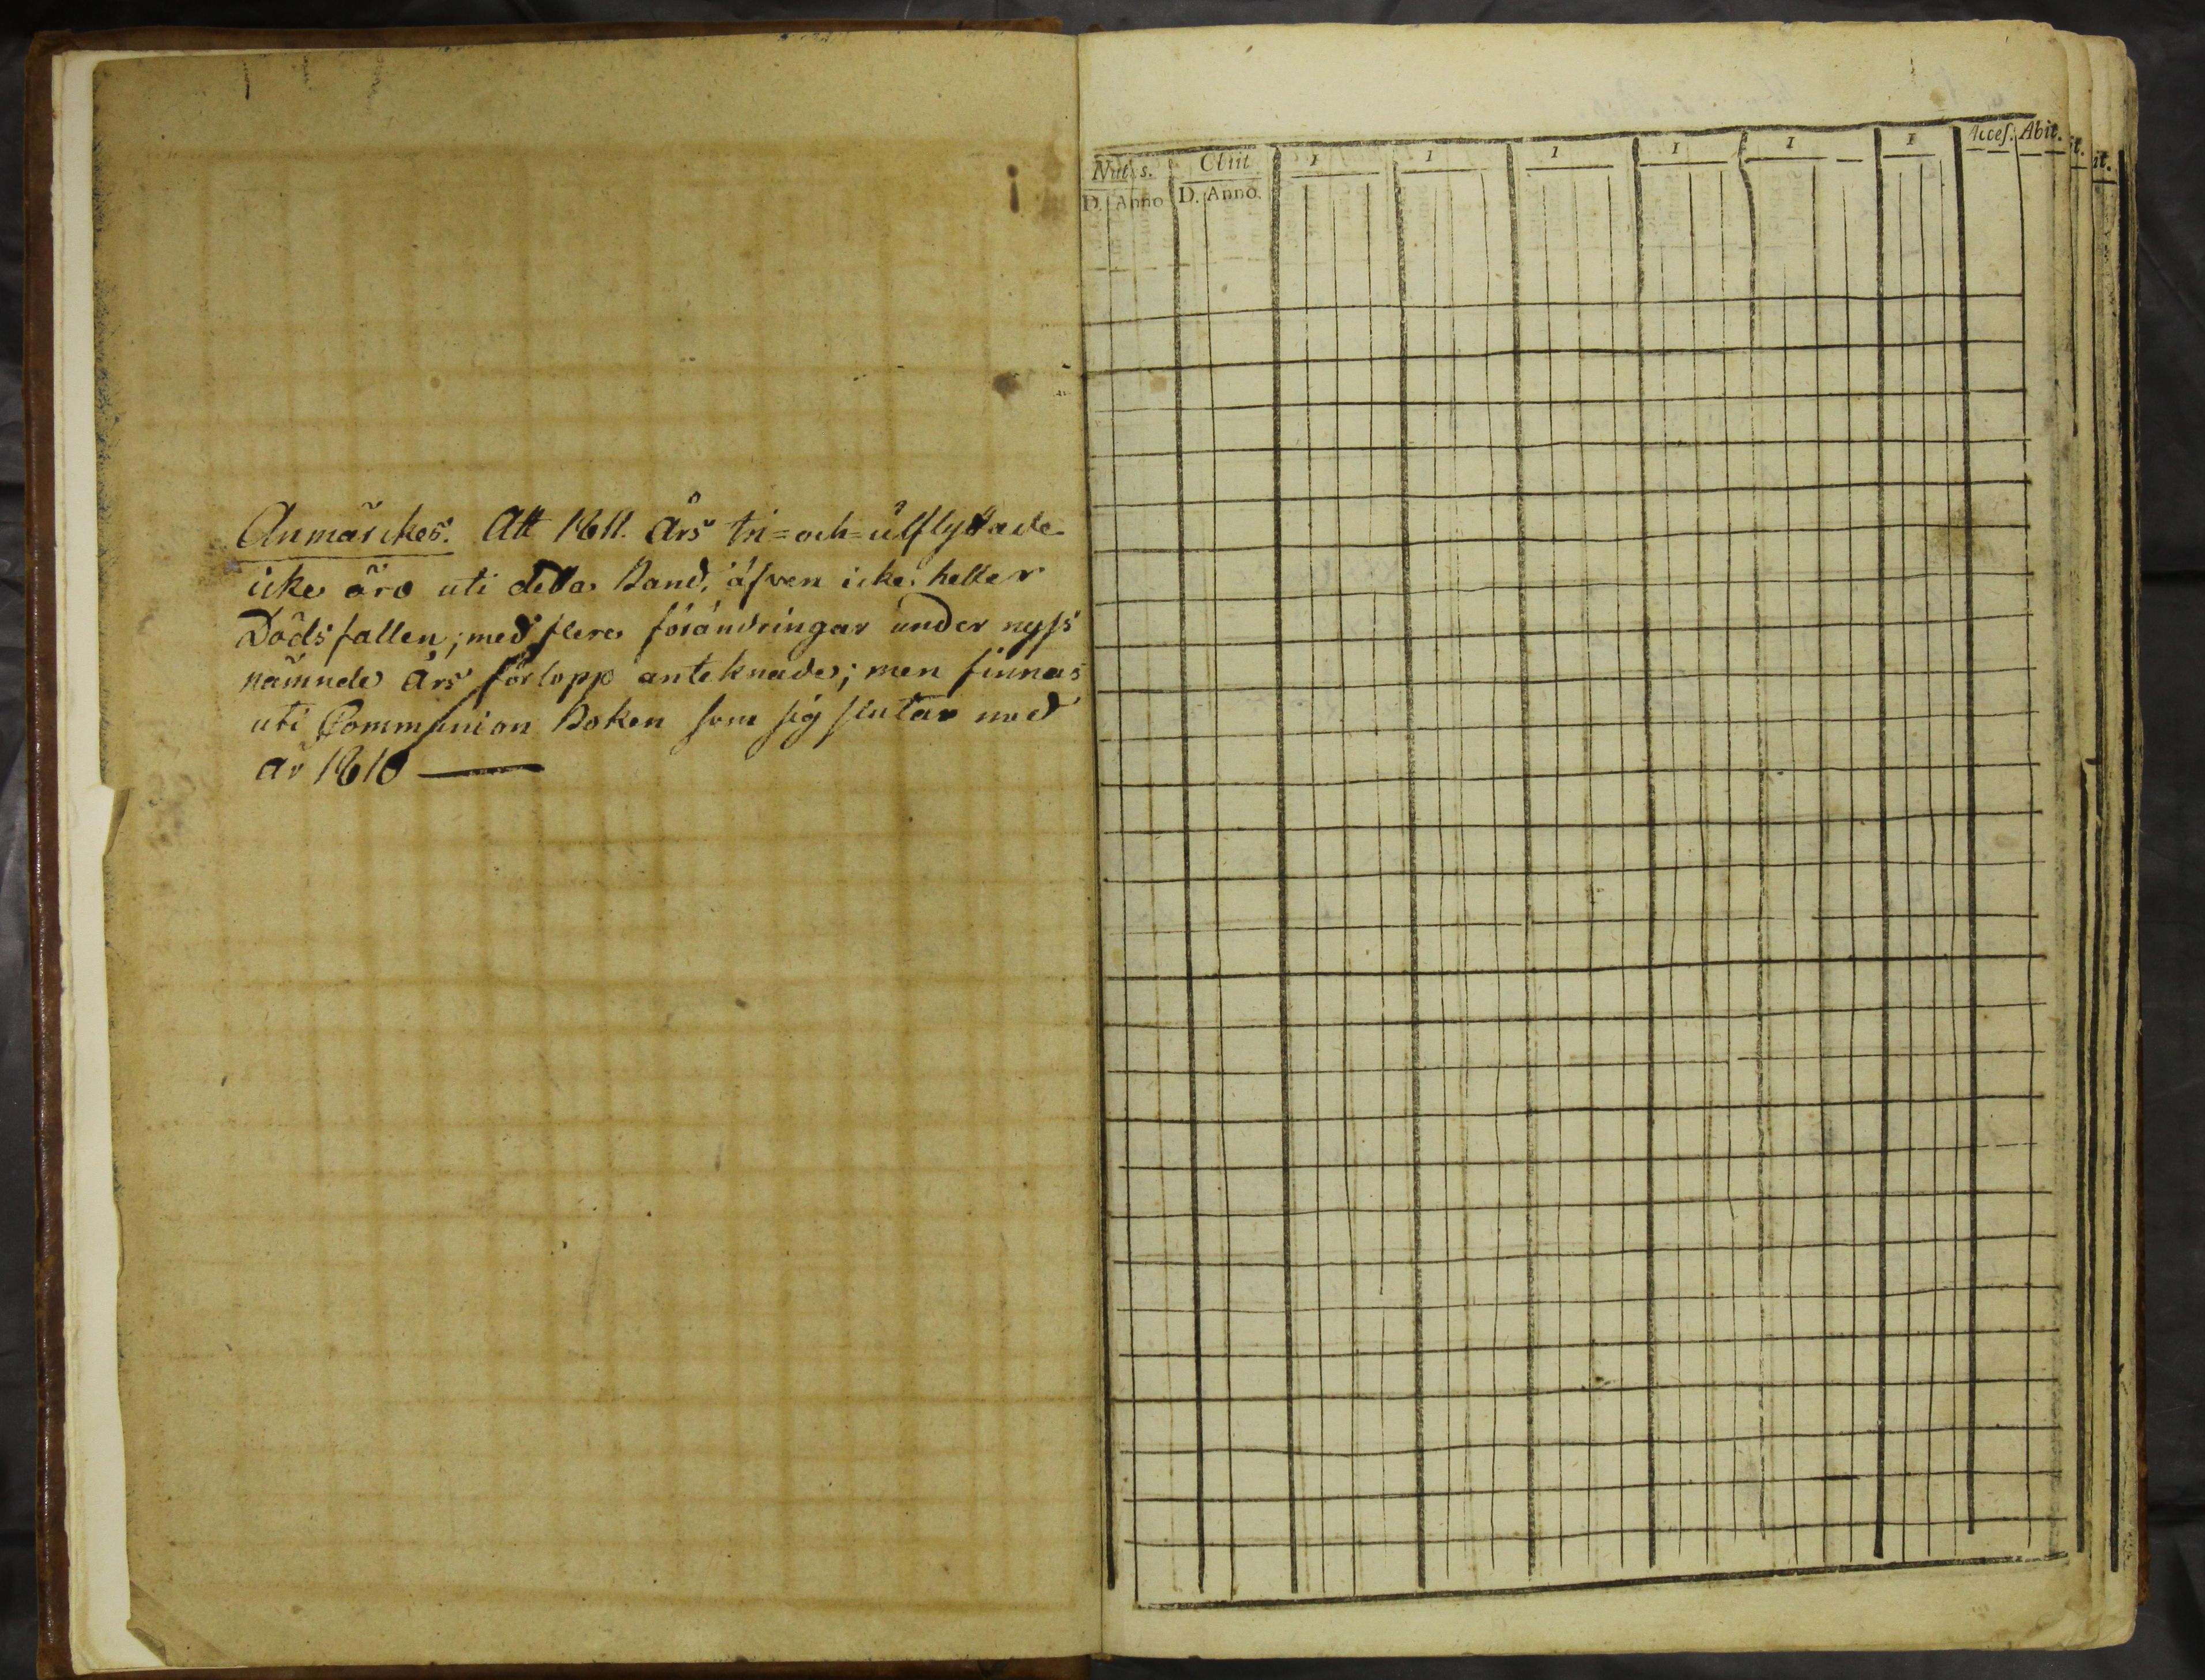 Anmärckes. Att 1811. Års in= och= utflyttade
icke äro uti detta Band, äfven icke heller
Dödsfallen, med flere förändringar under nyss
nämnde Års förlopp anteknade; men finnas
uti Communion Boken som sig slutar med
år 1810
Natus. Obiit 1 1 1 1 1 1 Acces. Abit.
D. Anno D. Anno.
it.
it.